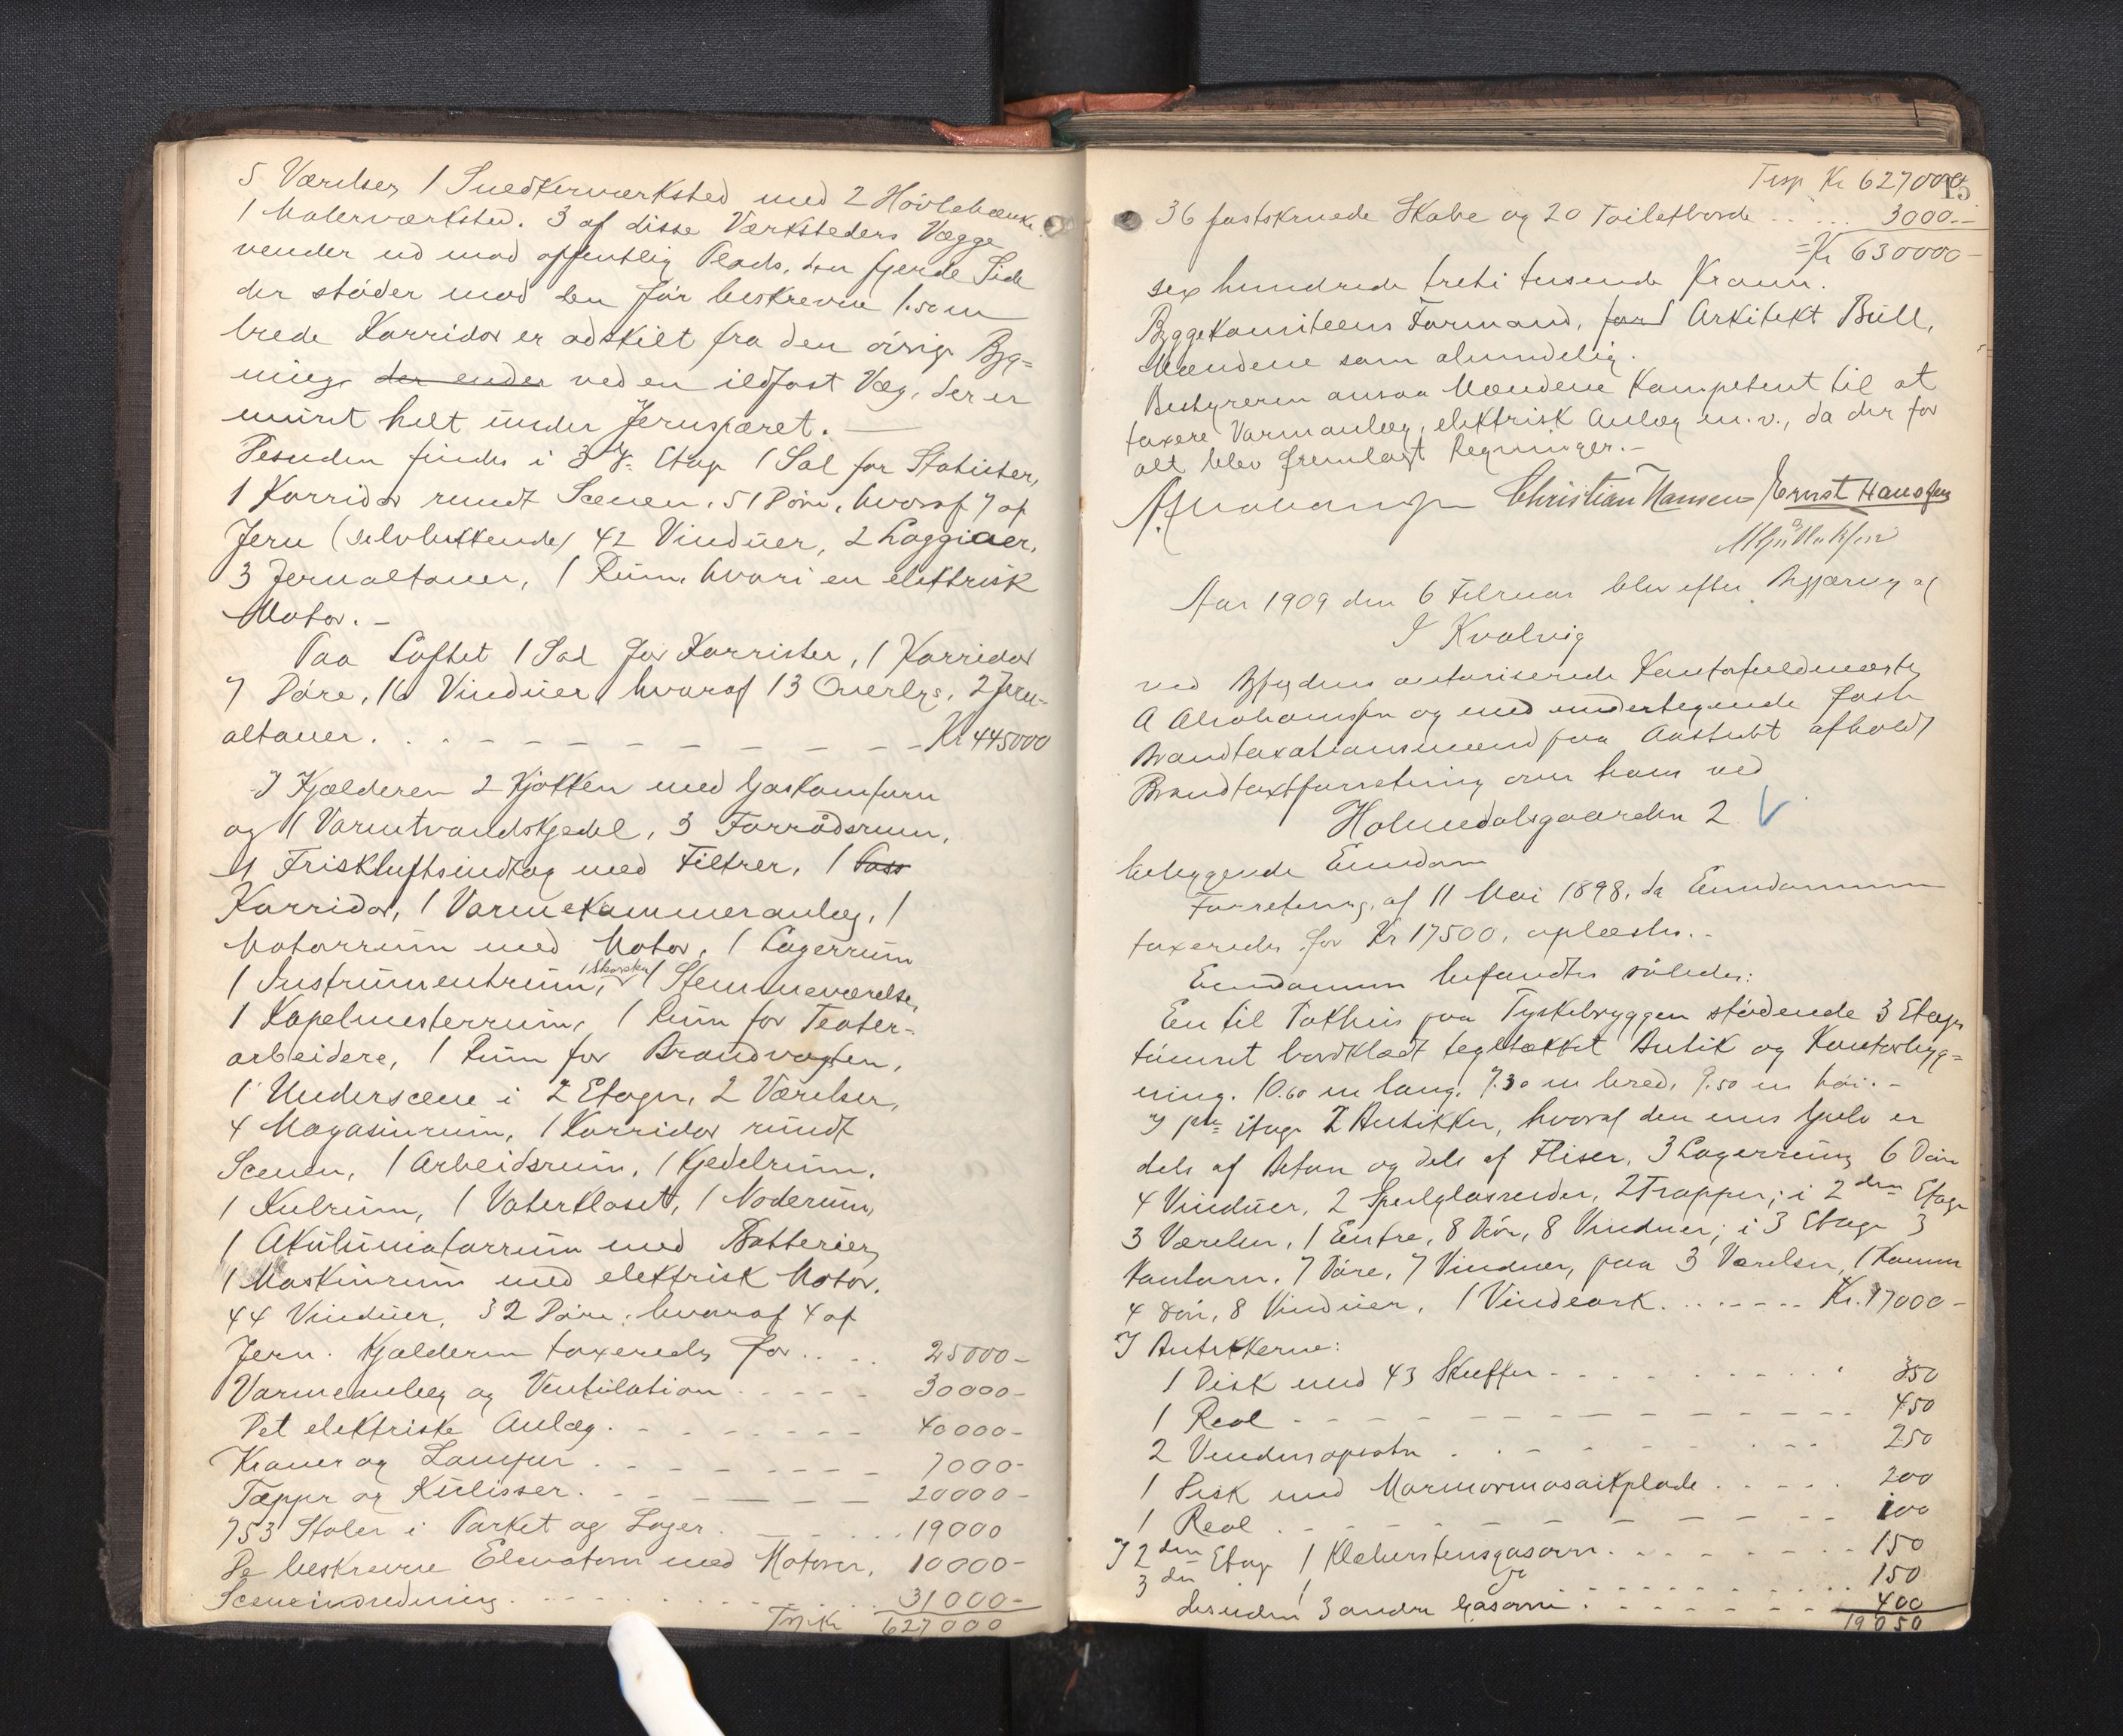 5 Værelser, 1 Snedkerværksted med 2 Høvlebænke.
1 Malerværksted. 3 af disse Værksteders Vægge
vender ud mod offentlig Plads, den fjerde Side
der støder mod den før beskrevne 1.50 m
brede Korridor er adskilt fra den øvrige Byg=
ning der ender ved en ildfast Væg, der er
muret helt under Jernspæret. —
Desuden findes i 3d: Etage 1 Sal for Statister,
1 Korridor rundt Scenen, 51 Døre, hvoraf 7 af
Jern (selvlukkende) 42 Vinduer, 2 Loggiaer,
3 Jernaltaner, 1 Rum, hvori en elektrisk
Motor. –
Paa Loftet 1 Sal for Korrister, 1 Korridor
7 Døre, 16 Vinduer hvoraf 13 Overlys, 2 Jern-
altaner. Kr 445000
I Kjælderen 2 Kjøkken med Gaskomfurn
og 1 Varmtvandskjedel, 3 Forrådsrum,
1 Friskluftsindtag med Filtrer, 1 Pass
Korridor, 1 Varmekammeranlæg, 1
Motorrum med Motor, 1 Lagerrum
1 Instrumentrum, 1 Stemmeværelse,
1 Kapelmesterrum, 1 Rum for Teater-
arbeidere, 1 Rum for Brandvagten,
1 Underscene i 2 Etager, 2 Værelser,
4 Magasinrum, 1 Korridor rundt
Scenen, 1 Arbeidsrum, 1 Kjedelrum,
1 Kulrum, 1 Vaterkloset, 1 Noderum,
1 Akulumatorrum med Batterier,
1 Maskinrum med elektrisk Motor.
44 Vinduer, 32 Døre, hvoraf 4 af
Jern. Kjælderen taxeredes for 25000 –
Varmeanlæg og Ventilation 30000 –
Det elektriske Anlæg 40000 –
Kroner og Lamper 7000 –
Tæpper og Kulisser 20000 –
753 Stoler i Parket og Loger 19000
De beskrevne Elevatorer med Motorer, 10000 –
Sceneindredning 31000 –
Trsp Kr 627000
Trsp Kr 627000
15
36 fastskruede Skabe og 20 Toiletborde 3000 –
= Kr 630000 –
sex hundrede treti tusende Kroner.
Byggekomiteens Formand, Arkitekt Bull,
Mændene som almindelig.
Bestyreren ansaa Mændene kompetent til at
taxere Varmanlæg, elektrisk Anlæg m.v., da der for
alt blev fremlagt Regninger. –
A Abrahamsen Christian Hansen Ernst Hansen
Aar 1909 den 6 Februar blev efter Begjæring af
I Kvalvig
ved Byfogdens autoriserede Kontorfuldmægtig
A Abrahamsen og med undertegnede faste
Brandtaxationsmænd paa Aastedet afholdt
Brandtaxtforretning over hans ved
Holmedalsgaarden 2
beliggende Eiendom
Forretning af 11 Mai 1898, da Eiendommen
taxeredes for Kr 17500, oplæstes. –
Eiendommen befandtes således:
En til Pakhus paa Tyskebryggen stødende 3 Etages
tømret bordklædt tegltækket Butik og Kontorbyg=
ning. 10.60 m lang, 7.30 m bred, 9.50 m høi. –
I 1ste Etage 2 Butikker, hvoraf den enes Gulv er
dels af Beton og dels af Fliser, 3 Lagerrum, 6 Døre
4 Vinduer, 2 Speilglasruder, 2 Trapper; i 2den Etage
3 Værelser, 1 Entre, 8 Døre, 8 Vinduer; i 3 Etage 3
Kontorer, 7 Døre, 7 Vinduer, paa 3 Værelser, 1 Kammer
4 Døre, 8 Vinduer, 1 Vindeark. Kr. 17000 –
I Butikkerne:
1 Disk med 43 Skuffer 350
1 Reol 450
2 Vinduesopsatser 250
1 Disk med Marmormosaikplade 200
1 Reol 100
I 2den Etage 1 Klæberstensgasovn 150
3die 1 do 150
desuden 3 andre Gasovne 400
19050